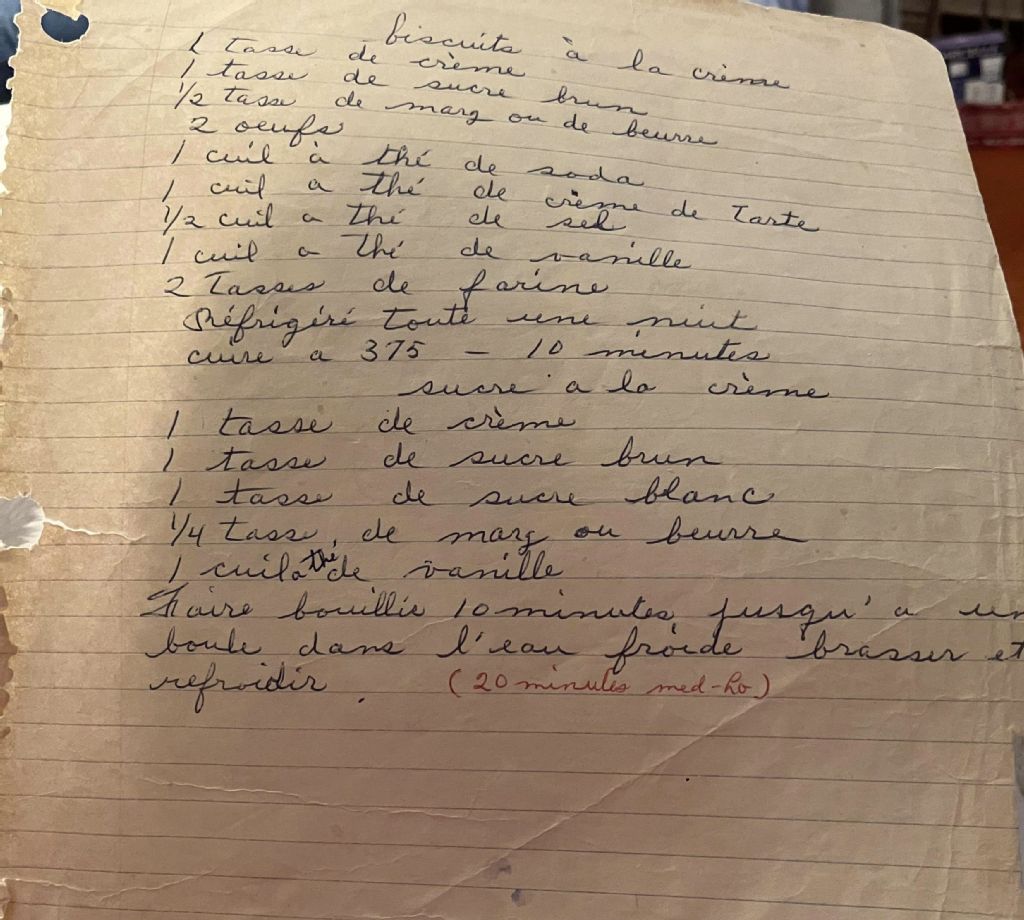 biscuits à la crème
1 tasse de crème
1 tasse de sucre brun
1/2 tasse de marg ou de beurre
2 oeufs
1 cuil à thé de soda
1 cuil a thé de crème de Tarte
1/2 cuil a thé de sel
1 cuil a thé de vanille
2 Tasses de farine
Réfrigéré toute une nuit
cuire a 375 – 10 minutes
sucre a la crème
1 tasse de crème
1 tasse de sucre brun
1 tasse de sucre blanc
1/4 tasse, de marg ou beurre
1 cuil a thé de vanille
Faire bouillie 10 minutes, jusqu'a un
boule dans l'eau froide brasser et
refroidir. (20 minutes med-ho)